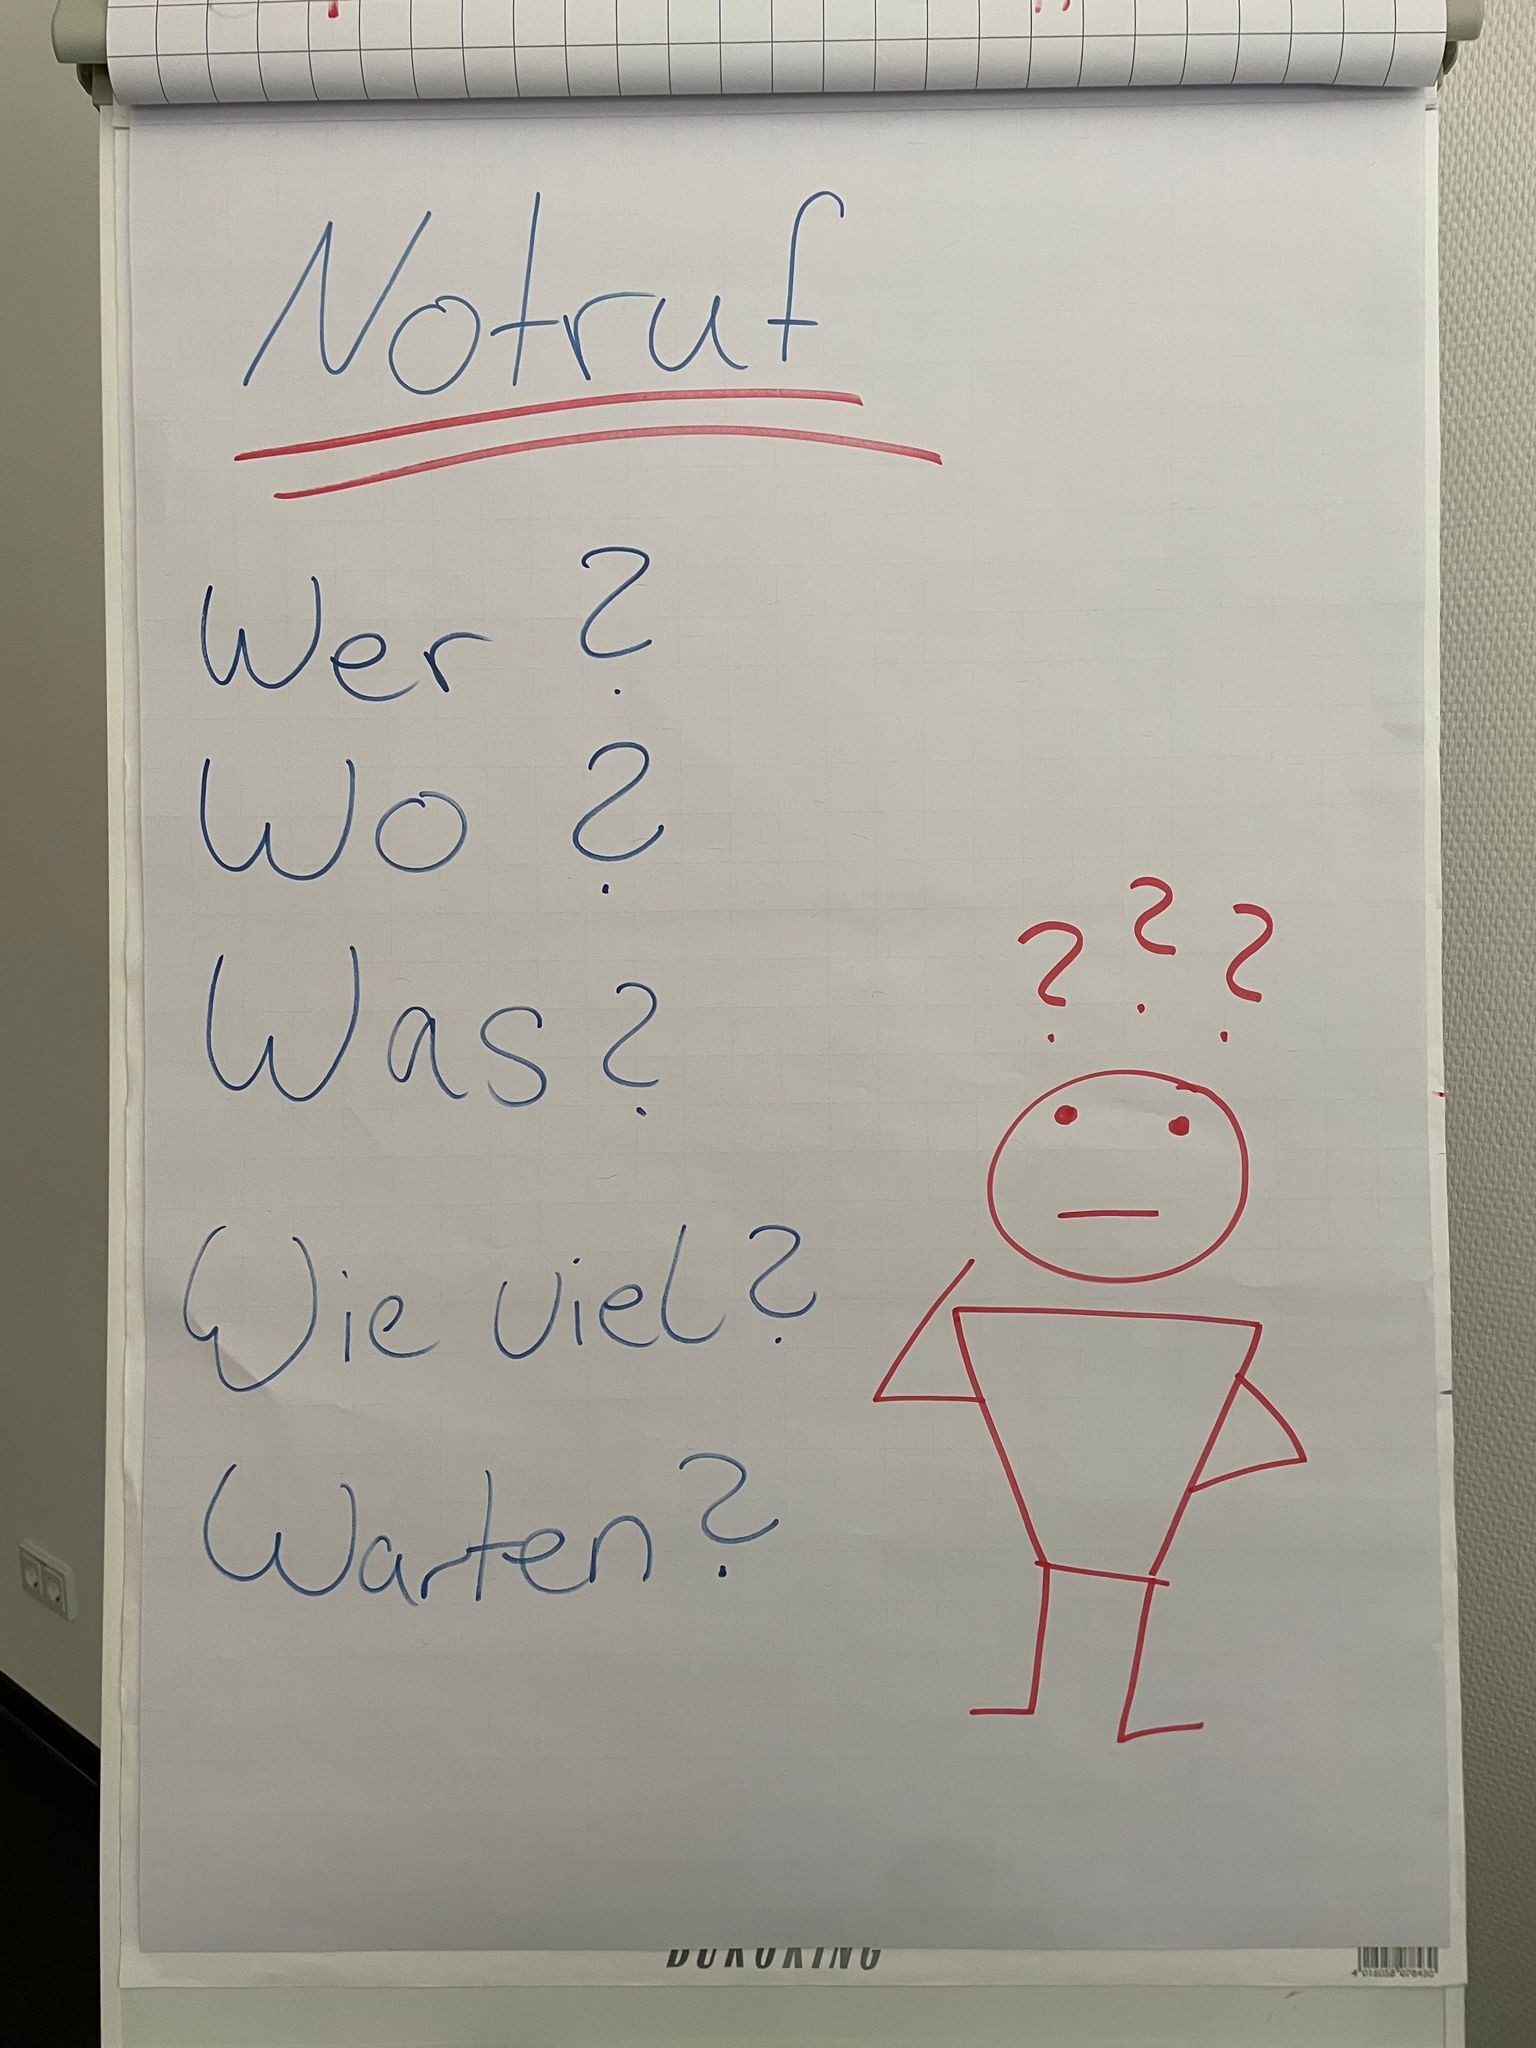 Notruf
Wer ?
Wo ?
Was ?
? ? ?
Wie viel ?
Warten ?
BÜROKING